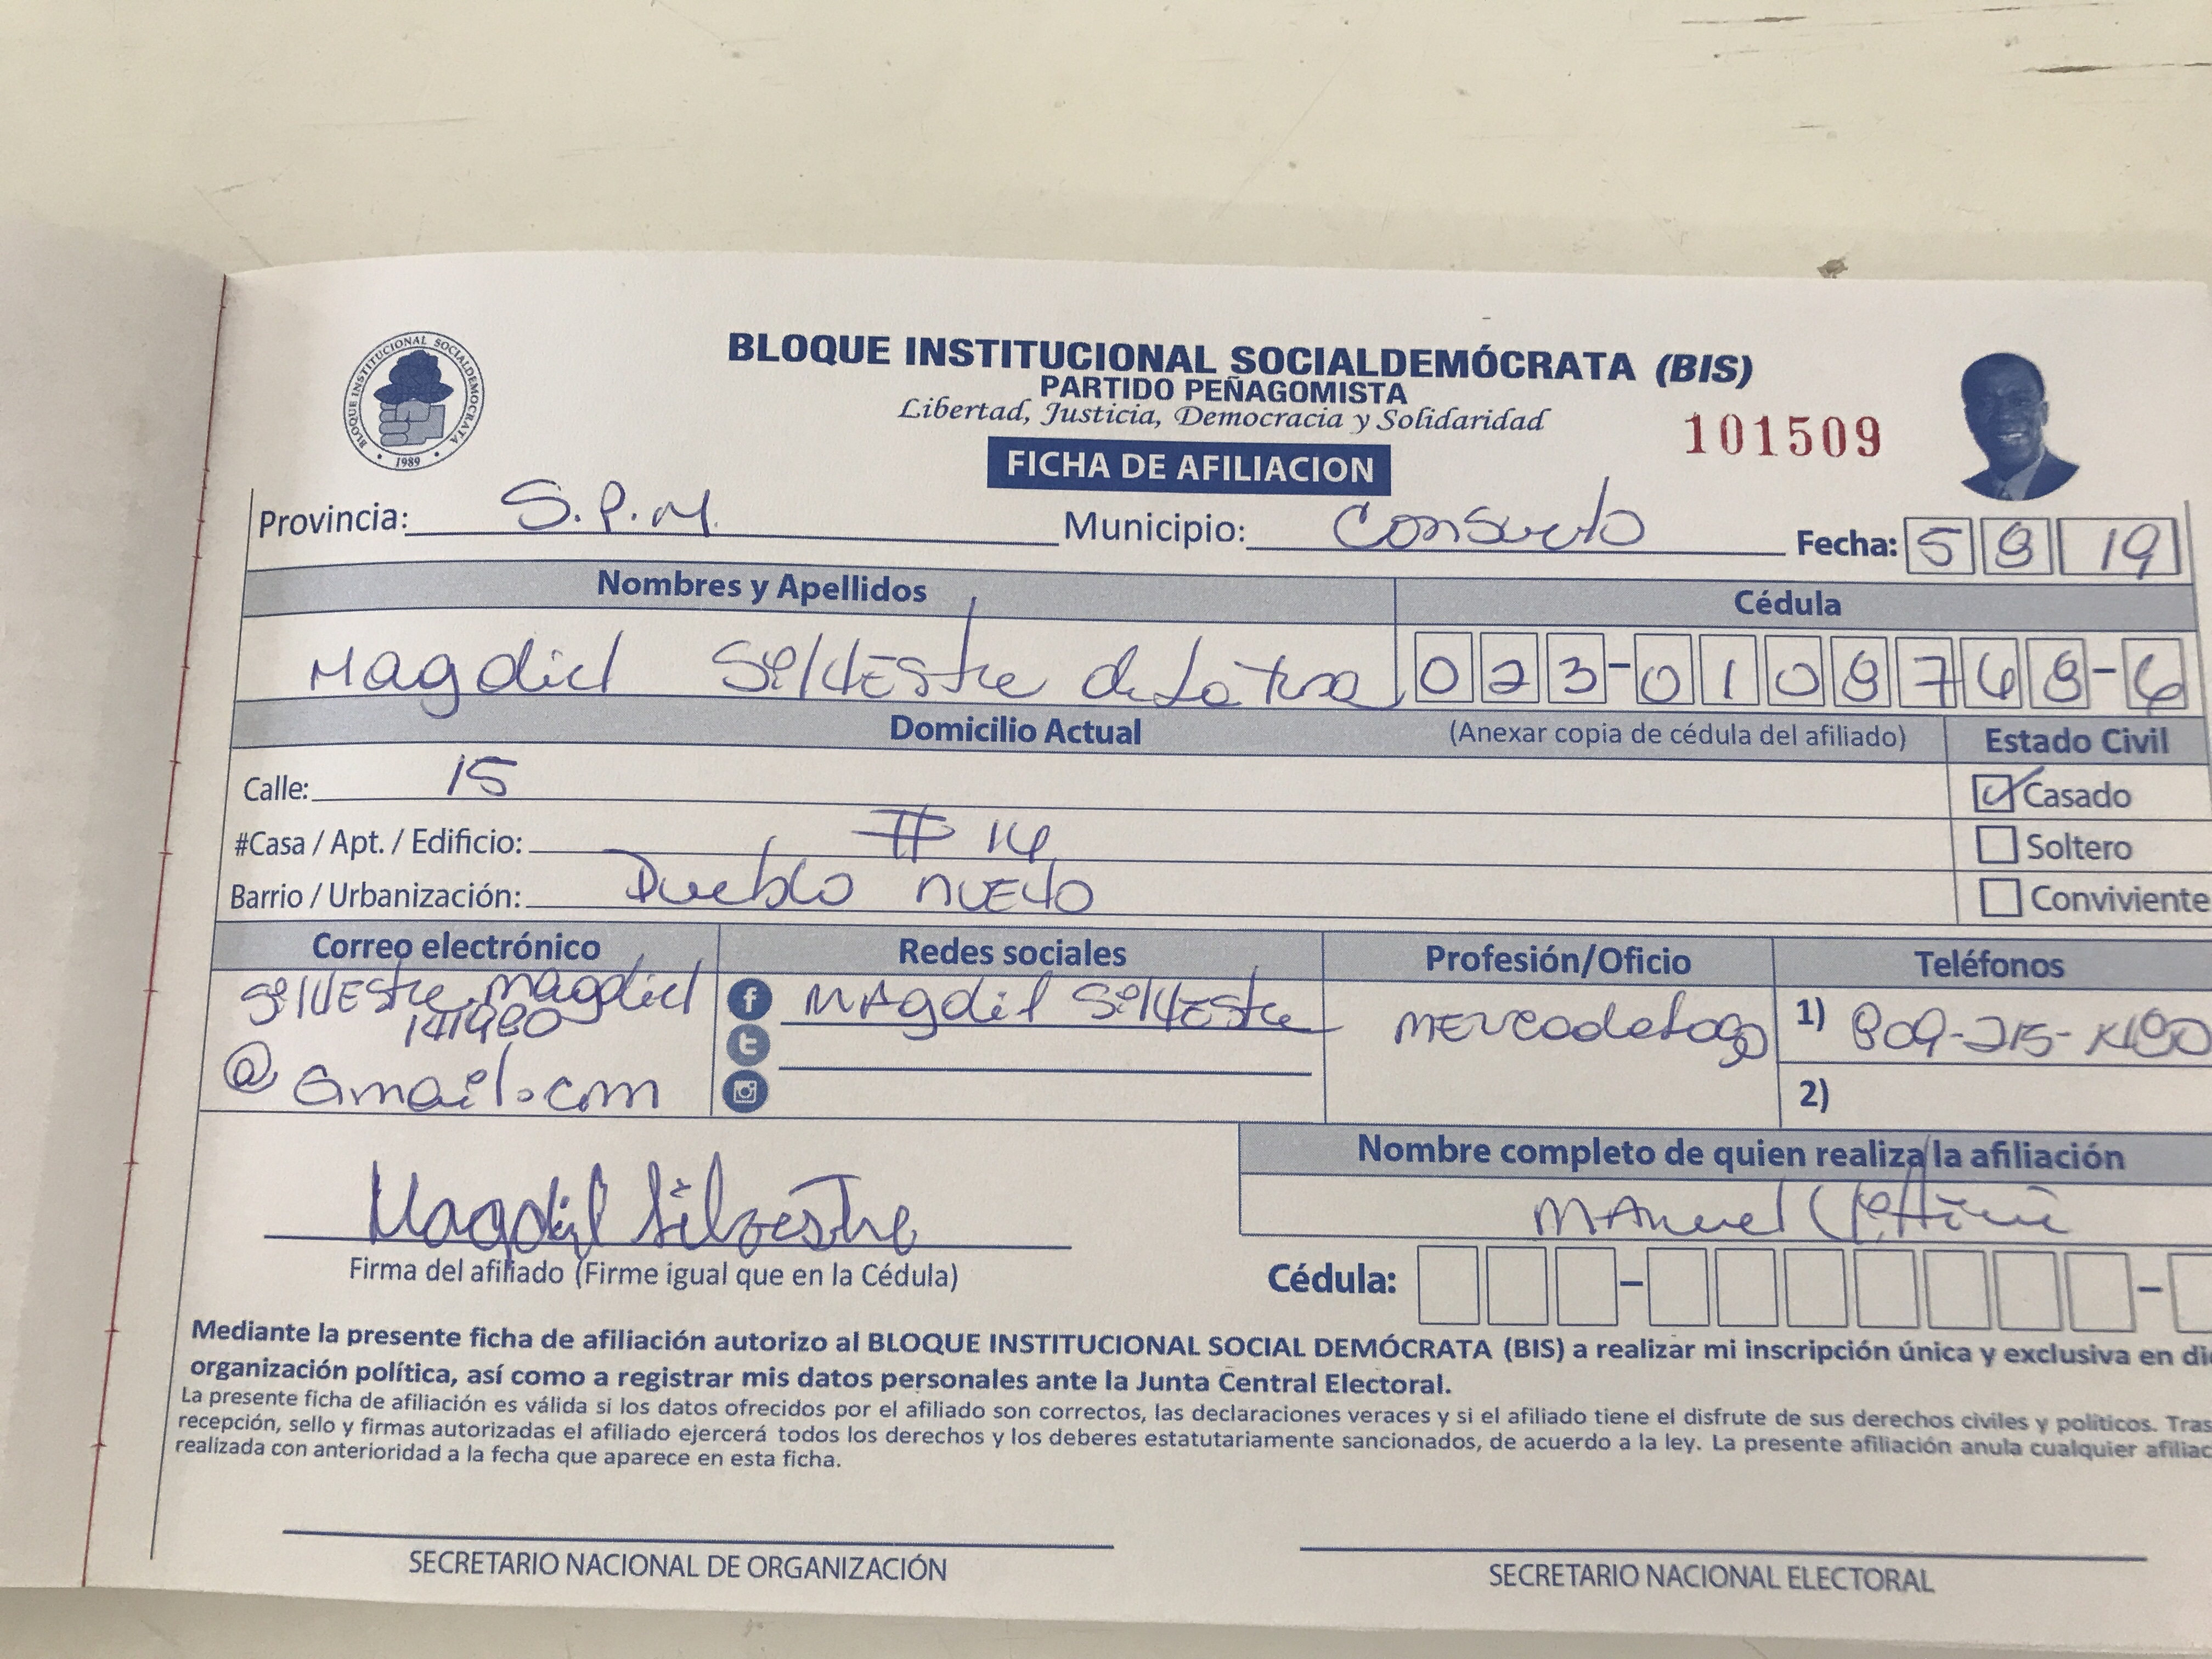 BLOQUE INSTITUCIONAL SOCIALDEMÓCRATA
1989
BLOQUE INSTITUCIONAL SOCIALDEMÓCRATA (BIS)
PARTIDO PEÑAGOMISTA
Libertad, Justicia, Democracia y Solidaridad
101509
FICHA DE AFILIACION
Provincia: S.P.M. Municipio: Consuelo Fecha: 5 8 19
Nombres y Apellidos Cédula
Magdiel Silvestre de La 023-0108768-6
Domicilio Actual (Anexar copia de cédula del afiliado) Estado Civil
Calle: 15 Casado
#Casa / Apt. / Edificio: # 14 Soltero
Barrio / Urbanización: Pueblo nuevo Conviviente
Correo electrónico Redes sociales Profesión/Oficio Teléfonos
Silvestre.magdiel Magdiel Silvestre mercadologo 1) 809-215-
@Gmail.com
2)
Magdiel Silvestre
Firma del afiliado (Firme igual que en la Cédula)
Nombre completo de quien realiza la afiliación
Manuel
Cédula:
Mediante la presente ficha de afiliación autorizo al BLOQUE INSTITUCIONAL SOCIAL DEMÓCRATA (BIS) a realizar mi inscripción única y exclusiva en
organización política, así como a registrar mis datos personales ante la Junta Central Electoral.
La presente ficha de afiliación es válida si los datos ofrecidos por el afiliado son correctos, las declaraciones veraces y si el afiliado tiene el disfrute de sus derechos civiles y políticos. Tras
recepción, sello y firmas autorizadas el afiliado ejercerá todos los derechos y los deberes estatutariamente sancionados, de acuerdo a la ley. La presente afiliación anula cualquier
realizada con anterioridad a la fecha que aparece en esta ficha.
SECRETARIO NACIONAL DE ORGANIZACIÓN SECRETARIO NACIONAL ELECTORAL